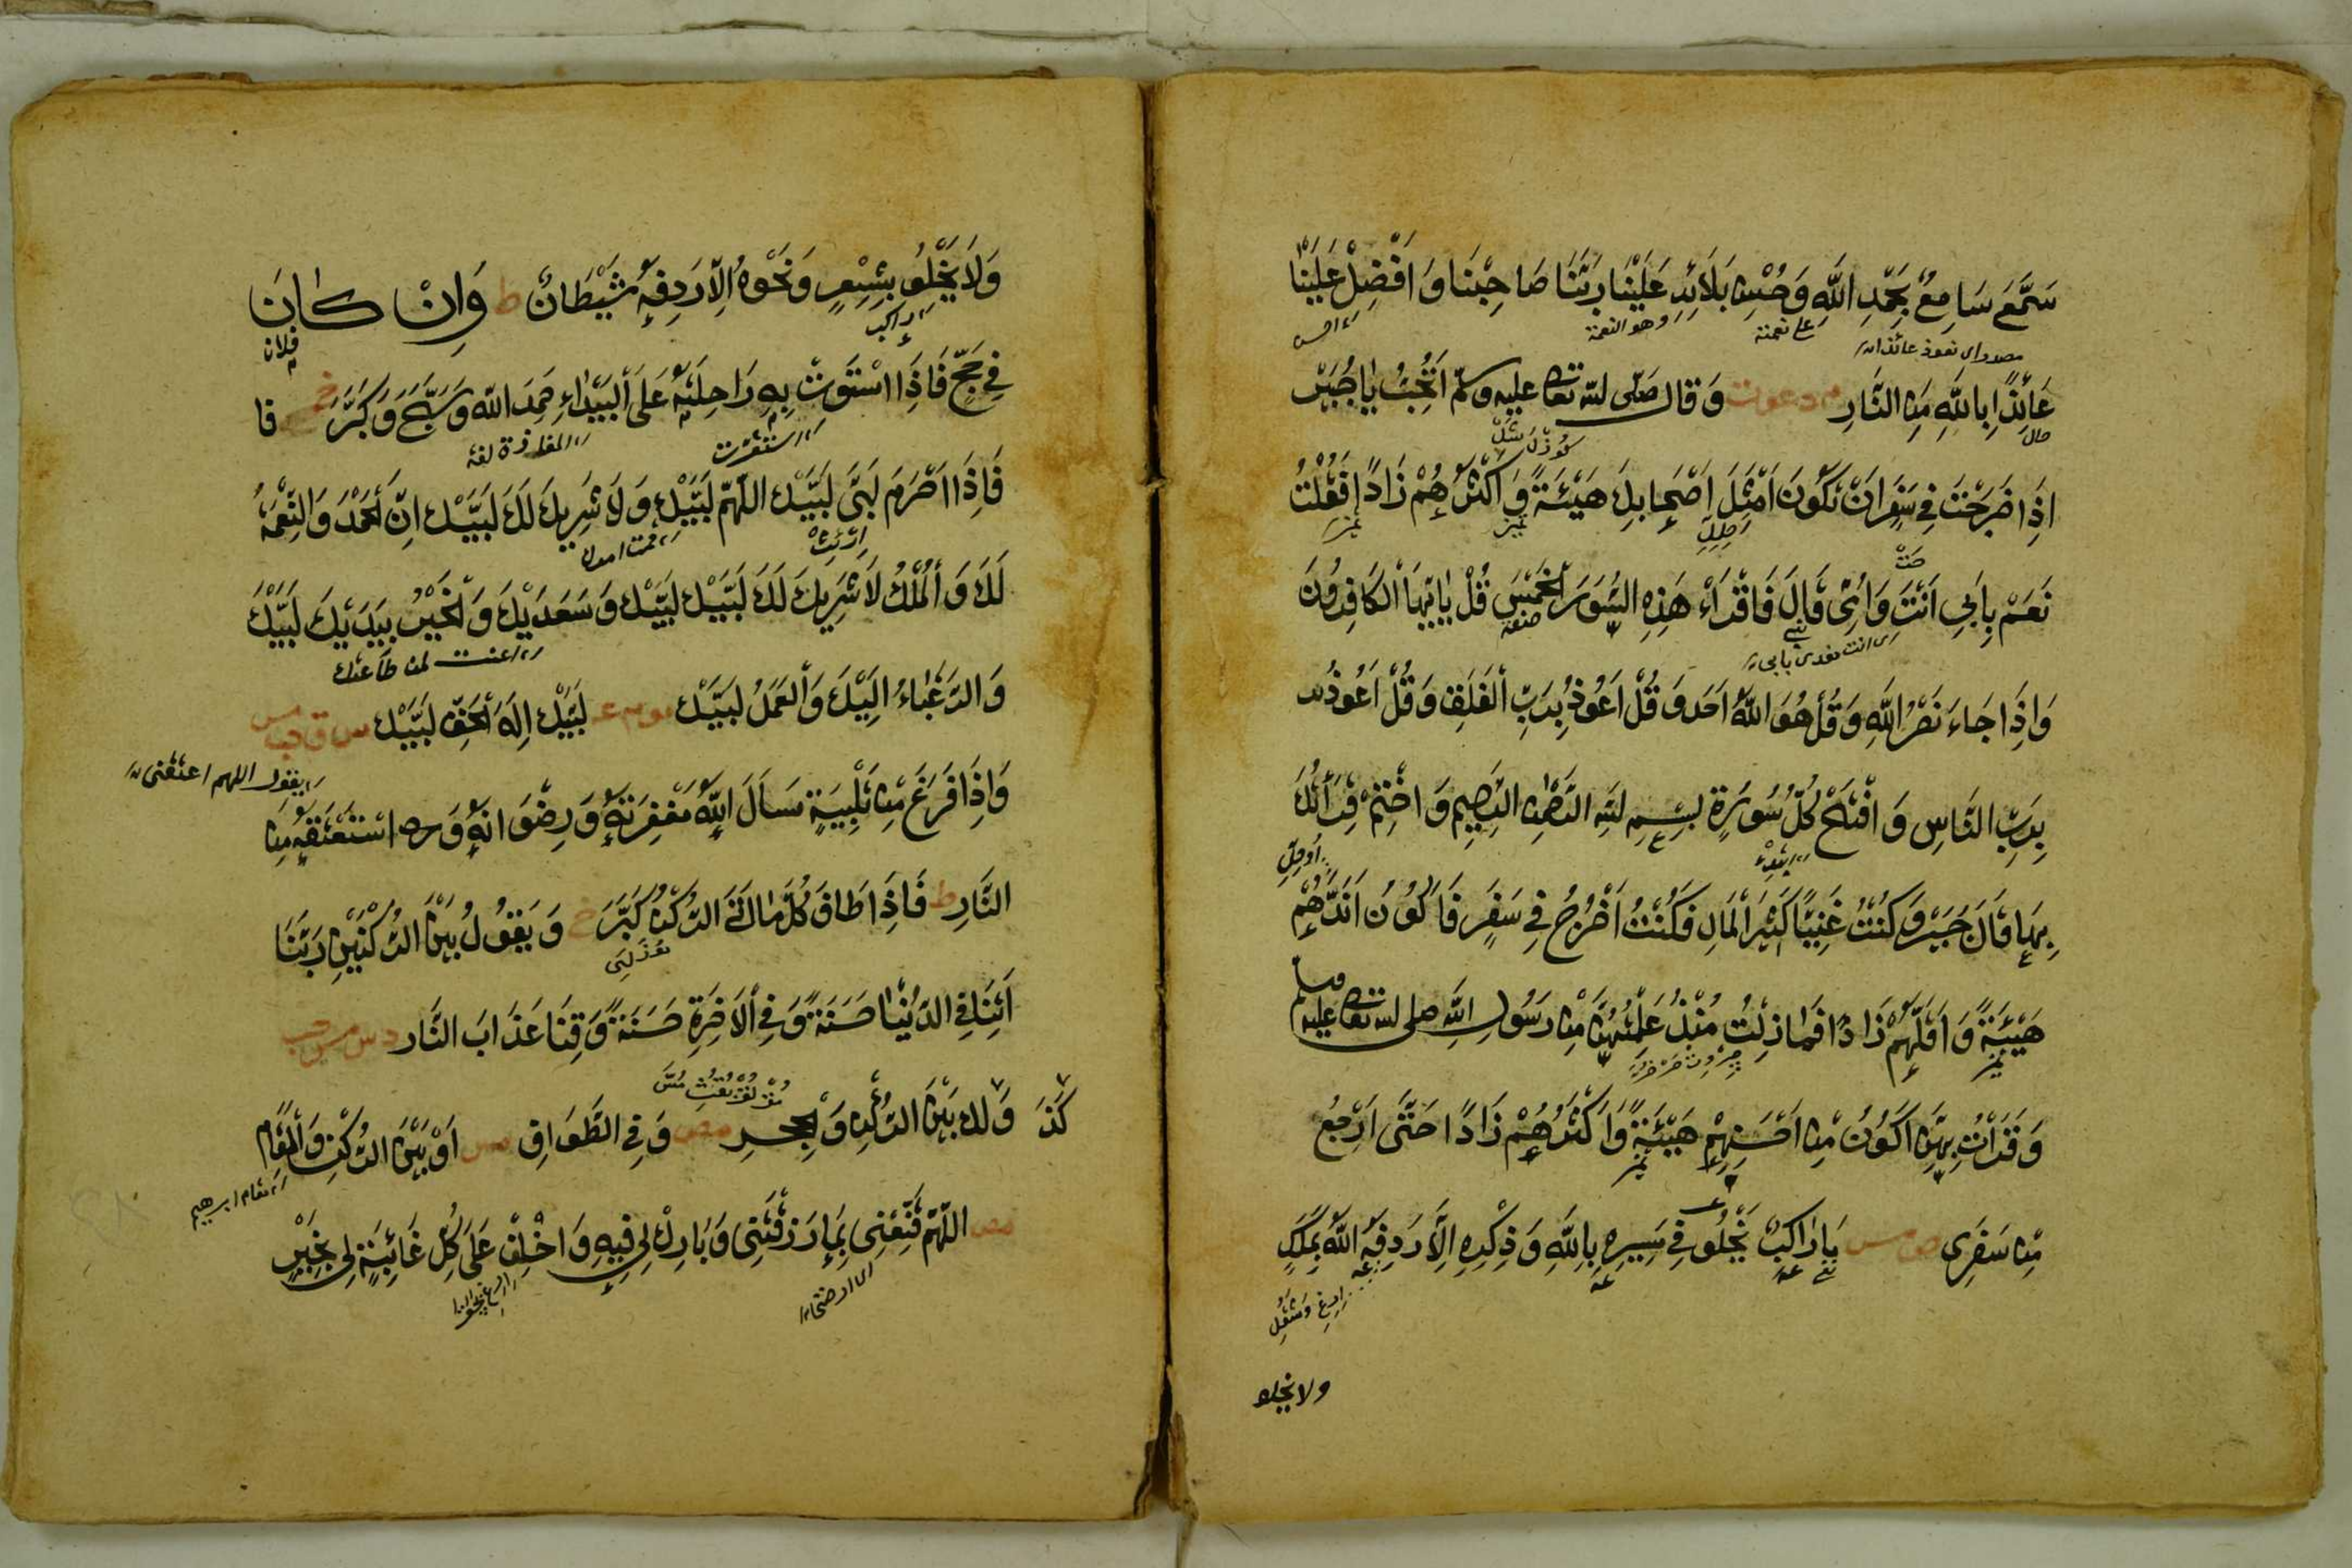 سَمَّعَ سَامِعٌ بِحَمْدِ اللَّهِ وَحُسْنِ بَلَائِهِ عَلَيْنَا رَبَّنَا صَاحِبْنَا وَأَفْضِلْ عَلَيْنَا
على نعمته
وهو النعمة
عَائِذًا بِاللَّهِ مِنَ النَّارِ م د عو ت وَقَالَ صَلّى الله تعالى عليه وسلّم اَتُحِبُّ يَا جُبَيْرُ
حال
اِذَا خَرَجْتَ فِي سَفَرٍ اَنْ تَكُونَ اَمْثَلَ اَصْحَابِكَ هَيْئَةً وَاَكْثَرَهُمْ زَادًا فَقُلْتُ
تميز
تميز
نَعَمْ بِاَبِي اَنْتَ وَاُمِّي قَالَ فَاقْرَاْ هَذِهِ السُّوَرَ الْخَمْسَ قُلْ يَا اَيُّهَا الْكَافِرُونَ
صفة
وَاِذَا جَاءَ نَصْرُ اللَّهِ وَقُلْ هُوَ اللَّهُ اَحَد وَقُلْ اَعُوذُ بِرَبِّ الْفَلَقِ وَقُلْ اَعُوذُ
بِرَبِّ النَّاسِ وَافْتَحْ كُلَّ سُورَةٍ بِسْمِ الله الرَّحْمٰنِ الرَّحِيمِ وَاخْتِمْ قِرَاْتَكَ
بِهَا قَالَ جُبَيْر وَكُنْتُ غَنِيًّا كَثِيرَ الْمَالِ فَكُنْتُ اَخْرُجُ فِي سَفَرٍ فَاَكُونُ اَبَذَّهُمْ
هَيْئَةً وَاَقَلَّهُمْ زَادًا فَمَا زِلْتُ مُنْذُ عَلِمْتُهُنَّ مِنْ رَسُولِ اللَّهِ صلى الله تعالى عليه وسلم
تميز
وَقَرَاْتُ بِهِنَّ اَكُونُ مِنْ اَحْسَنِهِمْ هَيْئَةً وَاَكْثَرِهِمْ زَادًا حَتَّى اَرْجِعَ
تميز
مِنْ سَفَرِي ص مس مَا رَاكِبٌ يَخْلُو فِي مَسِيرِهِ بِاللَّهِ وَذِكْرِهِ اِلَّا رَدِفَهُ اللَّهُ بِمَلَكٍ
ولا يخلو
وَلَا يَخْلُو بِشِعْرٍ وَنَحْوِهِ اِلَّا رَدِفَهُ شَيْطَانٌ ط وَاِنْ كَانَ
راكب
فلان
فِي حَجٍّ فَاِذَا اسْتَوَتْ بِهِ رَاحِلَتُهُ عَلَى الْبَيْدَاءِ حَمِدَ اللَّهَ وَسَبَّحَ وَكَبَّرَ خ فا
استقرت
فَاِذَا اَحْرَمَ لَبَّى لَبَّيْكَ اللّهمّ لَبَّيْكَ وَلَا شَرِيكَ لَكَ لَبَّيْكَ اِنَّ الْحَمْدَ وَالنِّعْمَةَ
لَكَ وَالْمُلْكُ لَا شَرِيكَ لَكَ لَبَّيْكَ لَبَّيْكَ وَسَعَدَيْكَ وَالْخَيْرُ بِيَدَيْكَ لَبَّيْكَ
وَالرَّغْبَاءُ اِلَيْكَ وَالْعَمَلُ لَبَّيْكَ مو م عه لَبَّيْكَ اِلَهَ الْحَقِّ لَبَّيْكَ س ق حب مس
يقول اللهم اعتقنى
وَاِذَا فَرَغَ مِنْ تَلْبِيَةٍ سَاَلَ اللَّهَ مَغْفِرَتَهُ وَرِضْوَانَهُ وَاسْتَعْتَقَهُ مِنَ
النَّارِ ط فَاِذَا طَافَ كُلَّمَا اَتَى الرُّكْنَ كَبَّرَ خ وَيَقُولُ بَيْنَ الرُّكْنَيْنِ رَبَّنَا
اَتِنَا فِي الدُّنْيَا حَسَنَةً وَفِي الْاَخِرَةِ حَسَنَةً وَقِنَا عَذَابَ النَّارِ د س مس حب
كَذَ وَلك بَيْنَ الرُّكْنِ وَالْحِجْرِ مص وَفِي الطَّوَافِ مس اَوْ بَيْنَ الرُّكْنِ وَالْمَقَامِ
مقام ابرهيم
مص اللّهمّ قَنِّعْنِي بِمَا رَزَقْتَنِي وَبَارِكْ لِي فِيهِ وَاخْلُفْ عَلَى كُلِّ غَائِبَةٍ لِي بِخَيْرٍ